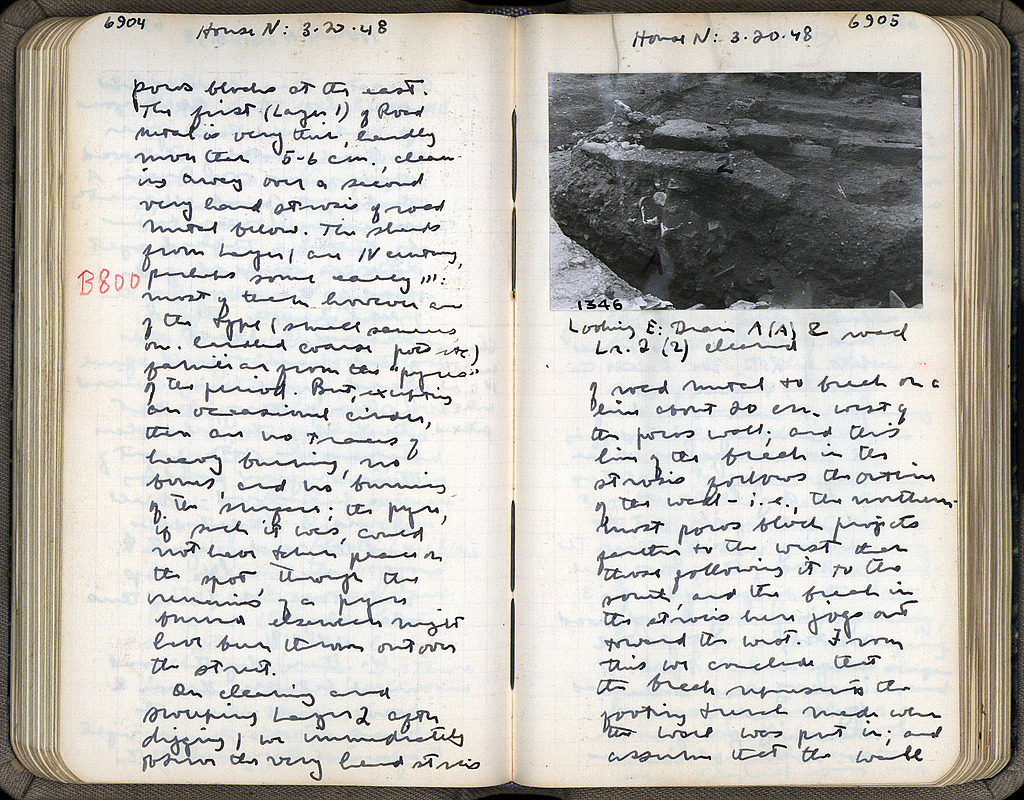 6904
House N: 3·20·48
poros blocks at the east.
The first (Layer 1) of Road
metal is very thin, hardly
more than 5-6 cm. clean-
ing away over a second
very hard strosis of road
metal below. The sherds
from Layer 1 are IV century,
perhaps some early III:
B800
most of them however are
of the type (small saucers
one handled coarse pots etc)
familiar from the "pyres"
of the period. But, excepting
an occasional cinder,
there are no traces of
heavy burning, no
bones, and no burning
of the sherds; the pyre,
if such it was, could
not have taken place on
the spot though the
remains of a pyre
burned elsewhere might
have been thrown out over
the street.
On cleaning and
sweeping Layer 2 after
digging 1 we immediately
observe the very hard strosis
6905
House N: 3·20·48
2
A
1346
Looking E: Drain 1 (A) & road
Lr. 2 (2) cleared
of road metal to break on a
line about 20 cm. west of
the poros wall; and this
line of the break in the
strosis follows the outline
of the wall - i.e., the northern-
most poros block projects
farther to the west than
those following it to the
south, and the break in
the strosis here jogs out
toward the west. From
this we conclude that
the break represents the
footing trench made when
the wall was put in; and
assume that the wall